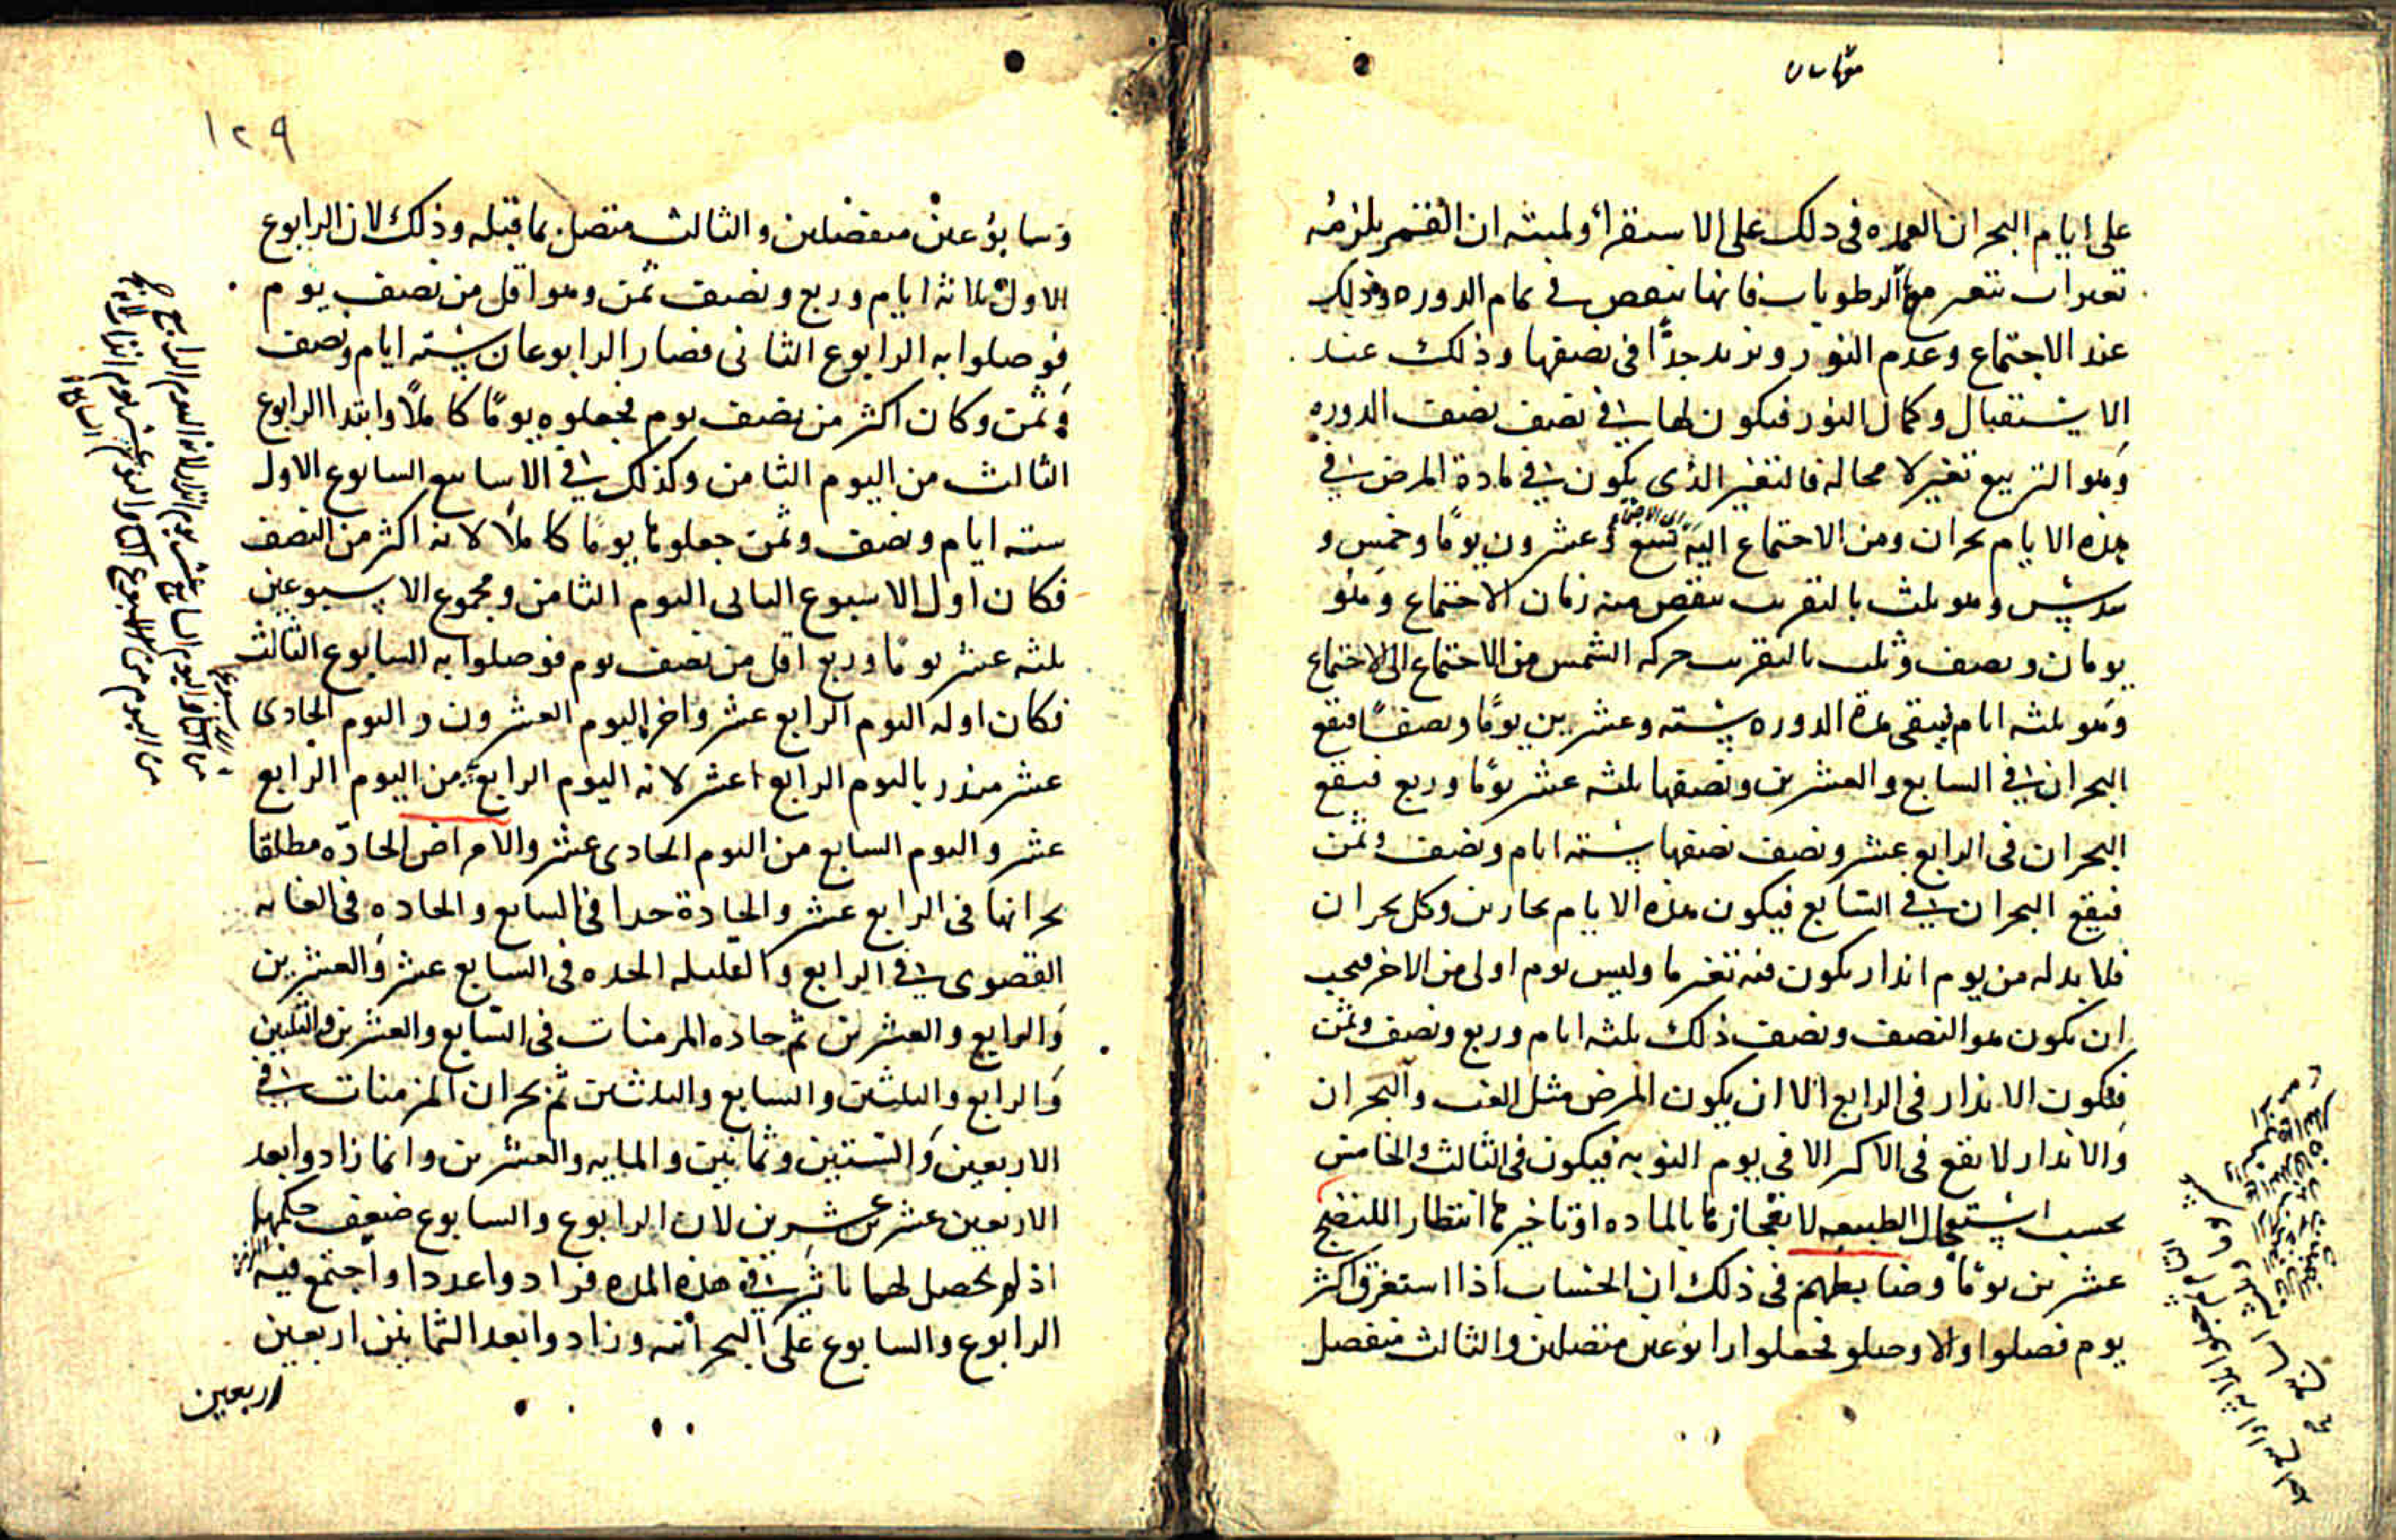 على ايام البحران العمده فى ذلك على الاستقرأ ولميته ان القمر يلزمه
تغيرات تتغير معها الرطوبات فانها تنقص فى تمام الدوره وذلك
عند الاجتماع وعدم النور وتزيد جدًّا فى نصفها وذلك عند
الاستقبال وكمال النور فيكون لها فى نصف نصف الدوره
وهو التربيع تغير لا محاله فالتغير الذى يكون فى مادة المرض فى
هذه الايام بحران ومن الاجتماع اليه تسع وعشرون يومًا وخمس و
سدس وهو ثلث بالتقريب ينقص منه زمان الاجتماع وهو
يومان ونصف وثلث بالتقريب حركه الشمس من الاجتماع الى الاجتماع
وهو ثلثه ايام فيبقى مدة الدوره سته وعشرين يومًا ونصفًا فيقع
البحران فى السابع والعشرين ونصفها ثلثه عشر يومًا وربع فيقع
البحران فى الرابع عشر ونصف نصفها سته ايام ونصف وثمن
فيقع البحران فى السابع فيكون هذه الايام بحارين وكل بحران
فلا بد له من يوم انذار يكون فيه تغير ما وليس يوم اولى من الاخر فيجب
ان يكون هو النصف ونصف ذلك ثلثه ايام وربع ونصف وثمن
فيكون الانذار فى الرابع الا ان يكون المرض مثل الغب والبحران
والانذار لا يقع فى الاكثر الا فى يوم النوبه فيكون فى الثالث والخامس
بحسب استعجال الطبيعه لانفجازها بالماده او تاخيرها انتظارا للنضج
عشرين يومًا وضابطهم فى ذلك ان الحساب اذا استغرق اكثر
يوم فصلوا والا وصلو فجعلوا رابوعين متصلين والثالث منفصل
١٢٩
وسابوعين منفصلين والثالث متصل بما قبله وذلك لان الرابوع
الاول ثلاثه ايام وربع ونصف ثمن وهو اقل من نصف يوم
فوصلوا به الرابوع الثانى فصار الرابوعان سته ايام ونصف
وثمن وكان اكثر من نصف يوم فجعلوه يومًا كاملًا وابتدا الرابوع
الثالث من اليوم الثامن وكذلك فى الاسابيع السابوع الاول
سته ايام ونصف وثمن جعلوها يومًا كاملًا لانه اكثر من النصف
فكان اول الاسبوع الثانى اليوم الثامن ومجموع الاسبوعين
ثلثه عشر يومًا وربع اقل من نصف يوم فوصلوا به السابوع الثالث
فكان اوله اليوم الرابع عشر واخرها اليوم العشرون واليوم الحادى
عشر منذر باليوم الرابع عشر لانه اليوم الرابع من اليوم الرابع
عشر واليوم السابع من اليوم الحادى عشر والامراض الحادّه مطلقا
بحرانها فى الرابع عشر والحادة جدا فى السابع والحاده فى الغايه
القصوى فى الرابع والقليله الحده فى السابع عشر والعشرين
والرابع والعشرين ثم حاده المزمنات فى السابع والعشرين والثلثين
والرابع والثلثين والسابع والثلثين ثم بحران المزمنات فى
الاربعين والستين وثمانين والمايه والعشرين وانما زادوا بعد
الاربعين عشرين عشرين لان الرابوع والسابوع ضعف حكمهما
اذ لم يحصل لهما تاثير فى هذه المده فزادوا عددا واجتمع فيه
الرابوع والسابوع على البحرانيه وزادوا بعد الثمانين اربعين
اربعين